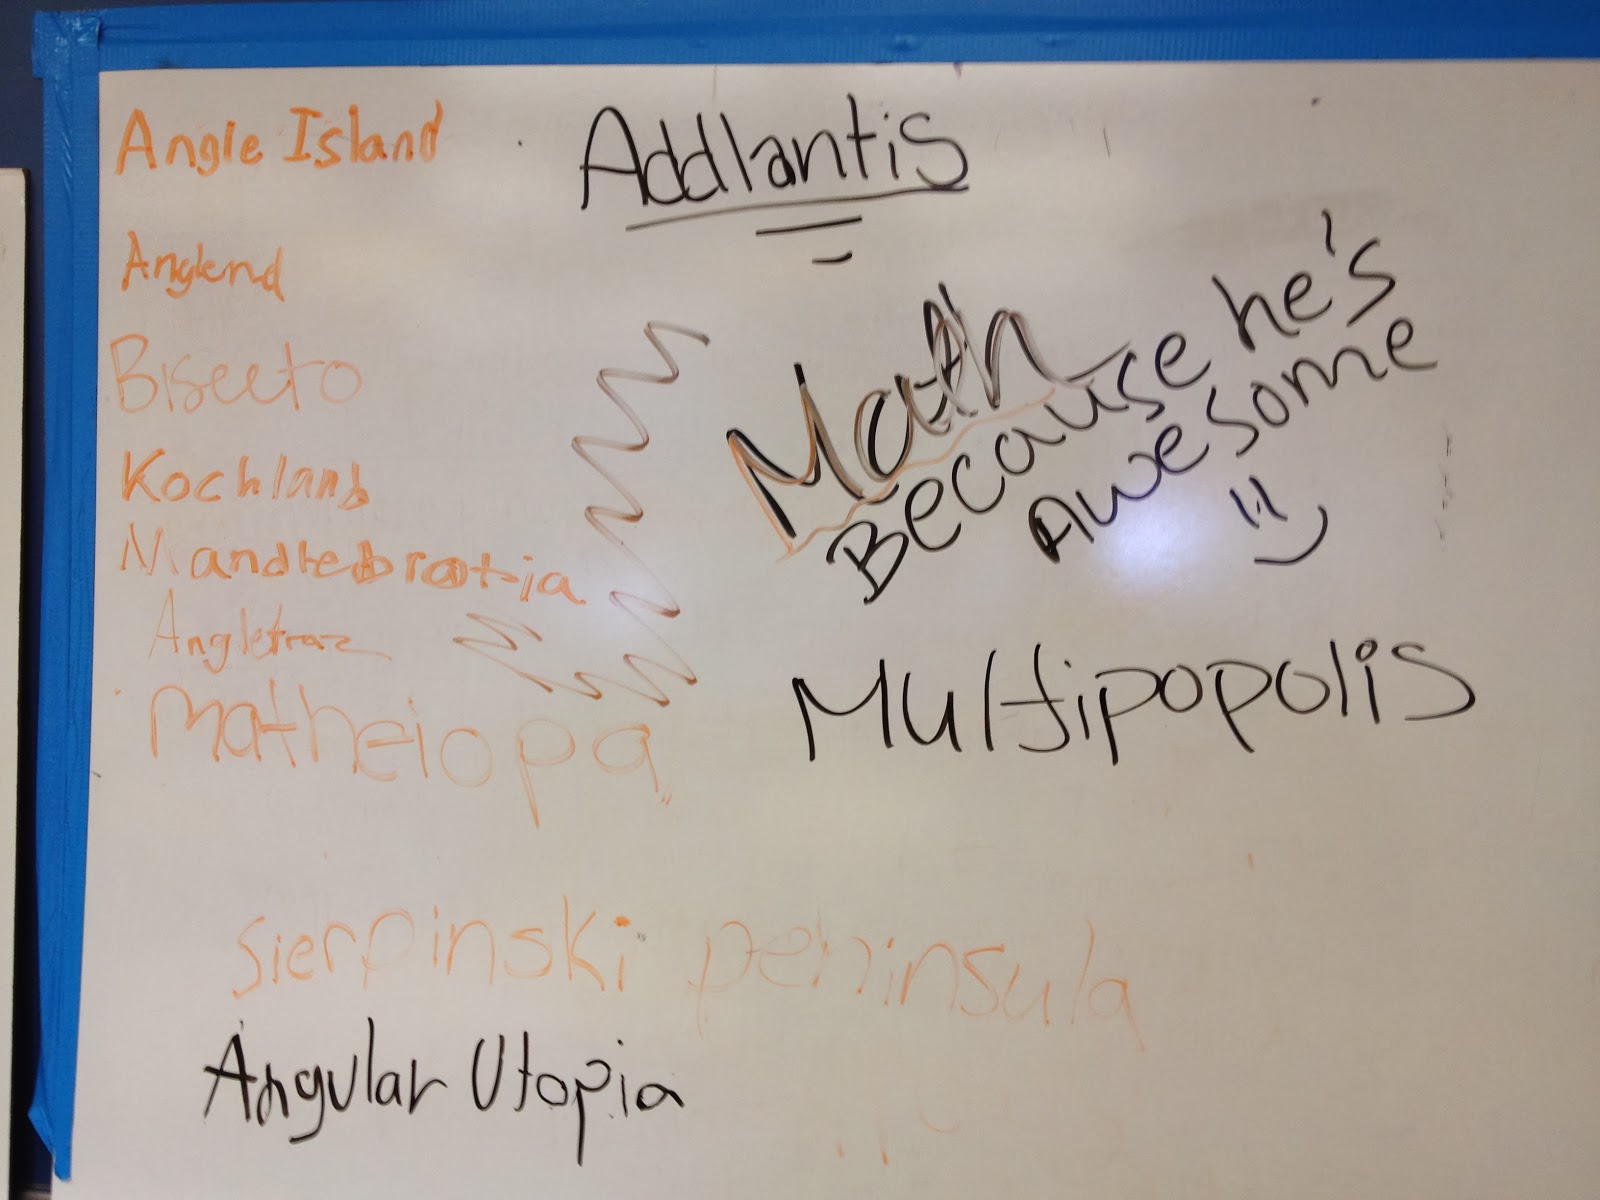 Angle Island
Addlantis
Anglend
Bisecto
Kochland
Mandlebrotia
Angletraz
Matheiopa
Math
Because he's
Awesome
:)
Multipopolis
Sierpinski peninsula
Angular Utopia